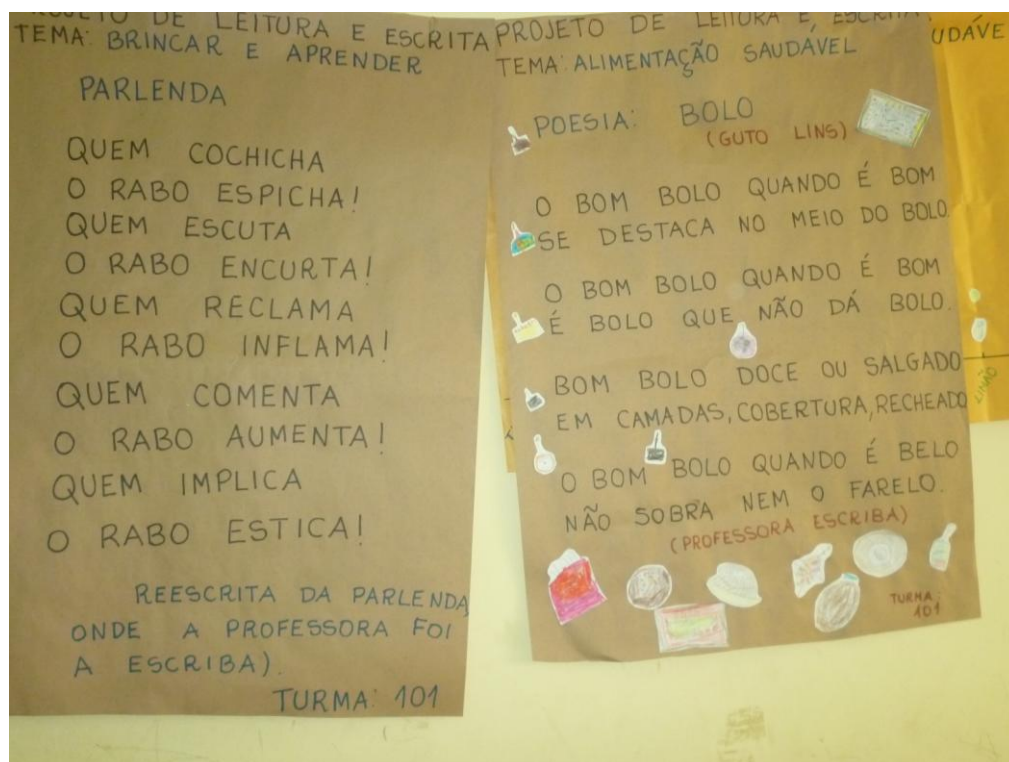 PROJETO DE LEITURA E ESCRITA
TEMA: BRINCAR E APRENDER
PARLENDA
QUEM COCHICHA
O RABO ESPICHA!
QUEM ESCUTA
O RABO ENCURTA!
QUEM RECLAMA
O RABO INFLAMA!
QUEM COMENTA
O RABO AUMENTA!
QUEM IMPLICA
O RABO ESTICA!
REESCRITA DA PARLENDA
ONDE A PROFESSORA FOI
A ESCRIBA).
TURMA: 101
PROJETO DE LEITURA E ESCRITA.
TEMA: ALIMENTAÇÃO SAUDÁVEL
POESIA: BOLO
(GUTO LINS)
O BOM BOLO QUANDO É BOM
SE DESTACA NO MEIO DO BOLO.
O BOM BOLO QUANDO É BOM
É BOLO QUE NÃO DÁ BOLO.
BOM BOLO DOCE OU SALGADO
EM CAMADAS, COBERTURA, RECHEADO
O BOM BOLO QUANDO É BELO
NÃO SOBRA NEM O FARELO.
(PROFESSORA ESCRIBA)
TURMA:
101
UDÁVE
LIMÃO